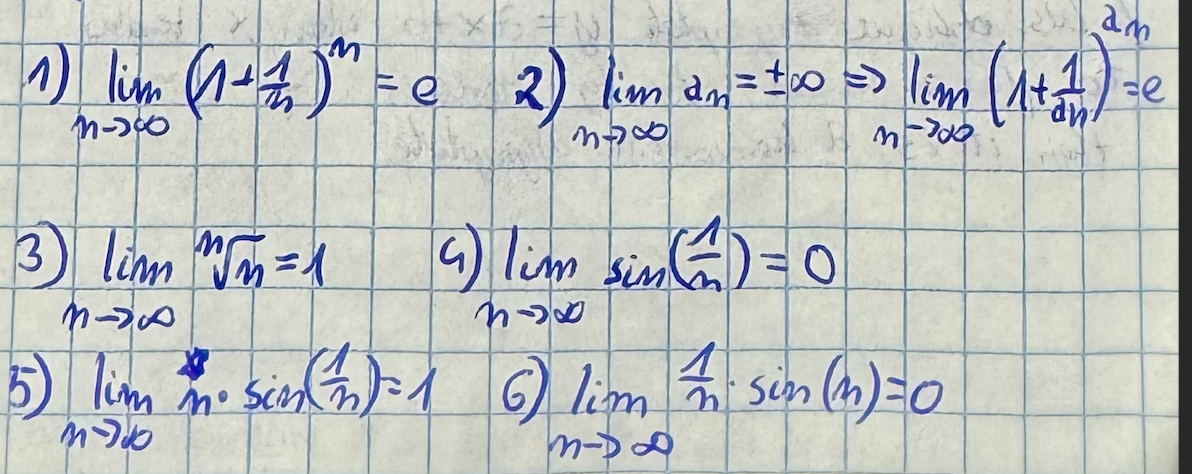 1) lim n→∞ (1+1/n)^n = e 2) lim n→∞ an = ±∞ => lim n→∞ (1+1/an)^an = e
3) lim n→∞ ⁿ√n = 1 4) lim n→∞ sin(1/n) = 0
5) lim n→∞ n · sin(1/n) = 1 6) lim n→∞ 1/n · sin(n) = 0